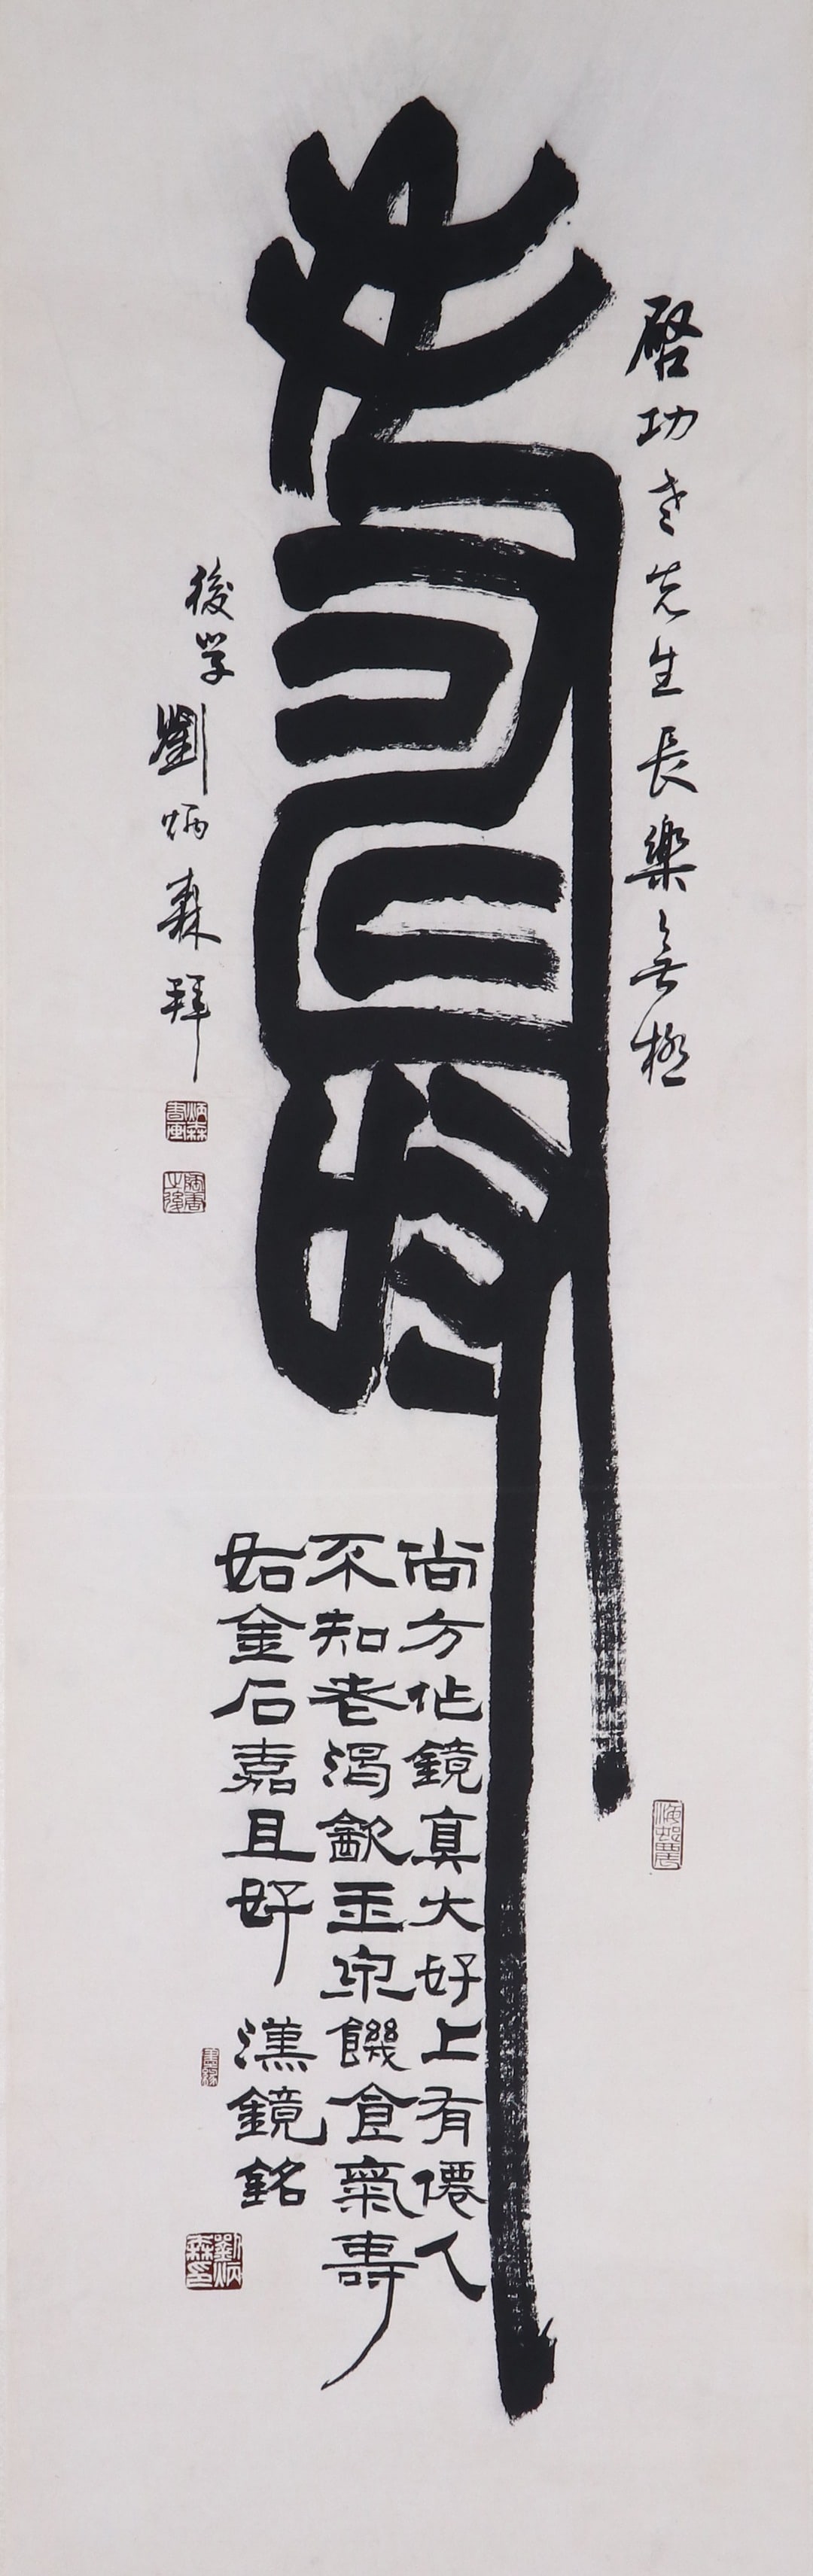 啓功老先生長樂無極
壽
尚方佐鏡真大好上有僊人
不知老渴飲玉泉饑食氣壽
如金石嘉且好 漢鏡銘
後學劉炳森拜
炳森書画
劉炳森印